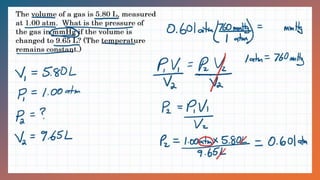 The volume of a gas is 5.80 L, measured
at 1.00 atm. What is the pressure of
the gas in mmHg if the volume is
changed to 9.65 L? (The temperature
remains constant.)
V₁ = 5.80 L
P₁ = 1.00 atm
P₂ = ?
V₂ = 9.65 L
0.601 atm (760 mmHg / 1 atm) = mmHg
1 atm = 760 mmHg
P₁V₁ / V₂ = P₂V₂ / V₂
P₂ = P₁V₁ / V₂
P₂ = 1.00 atm × 5.80 L / 9.65 L = 0.601 atm